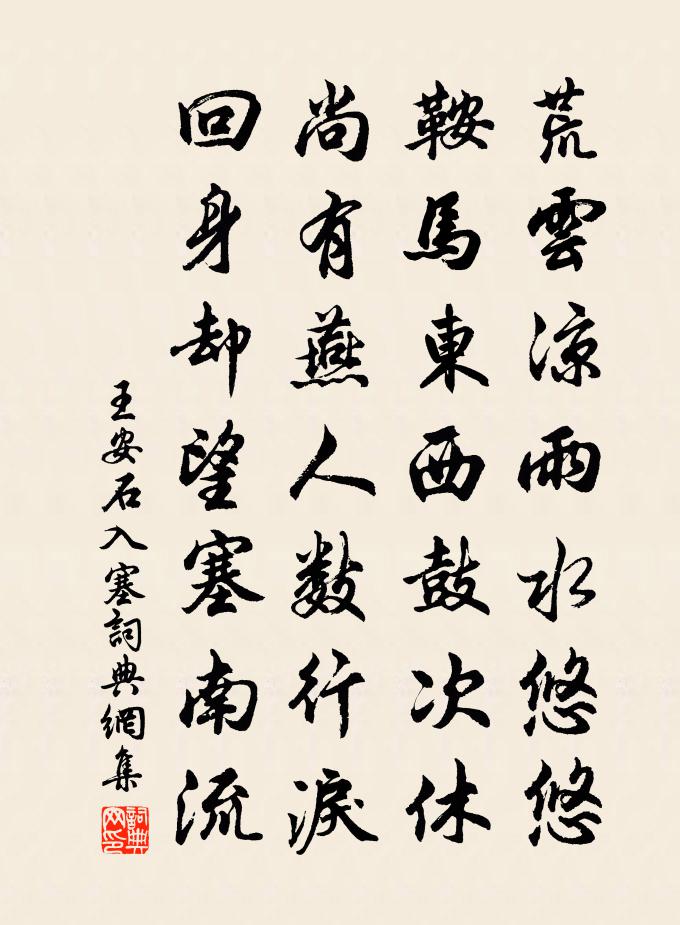 荒雲涼雨水悠悠
鞍馬東西鼓次休
尚有燕人數行淚
回身却望塞南流
王安石入塞詞典網集
詞典网印